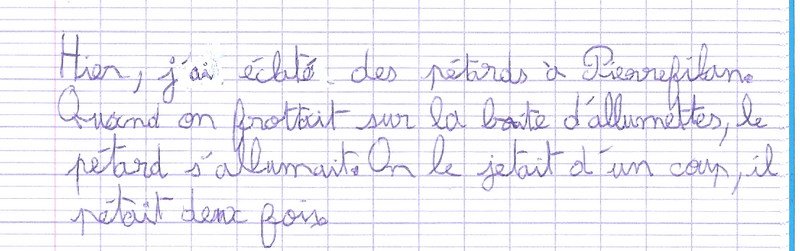 Hier, j'ai éclaté des pétards à Pierrefilan.
Quand on frottait sur la boîte d'allumettes, le
pétard s'allumait. On le jetait d'un coup, il
pétait deux fois.